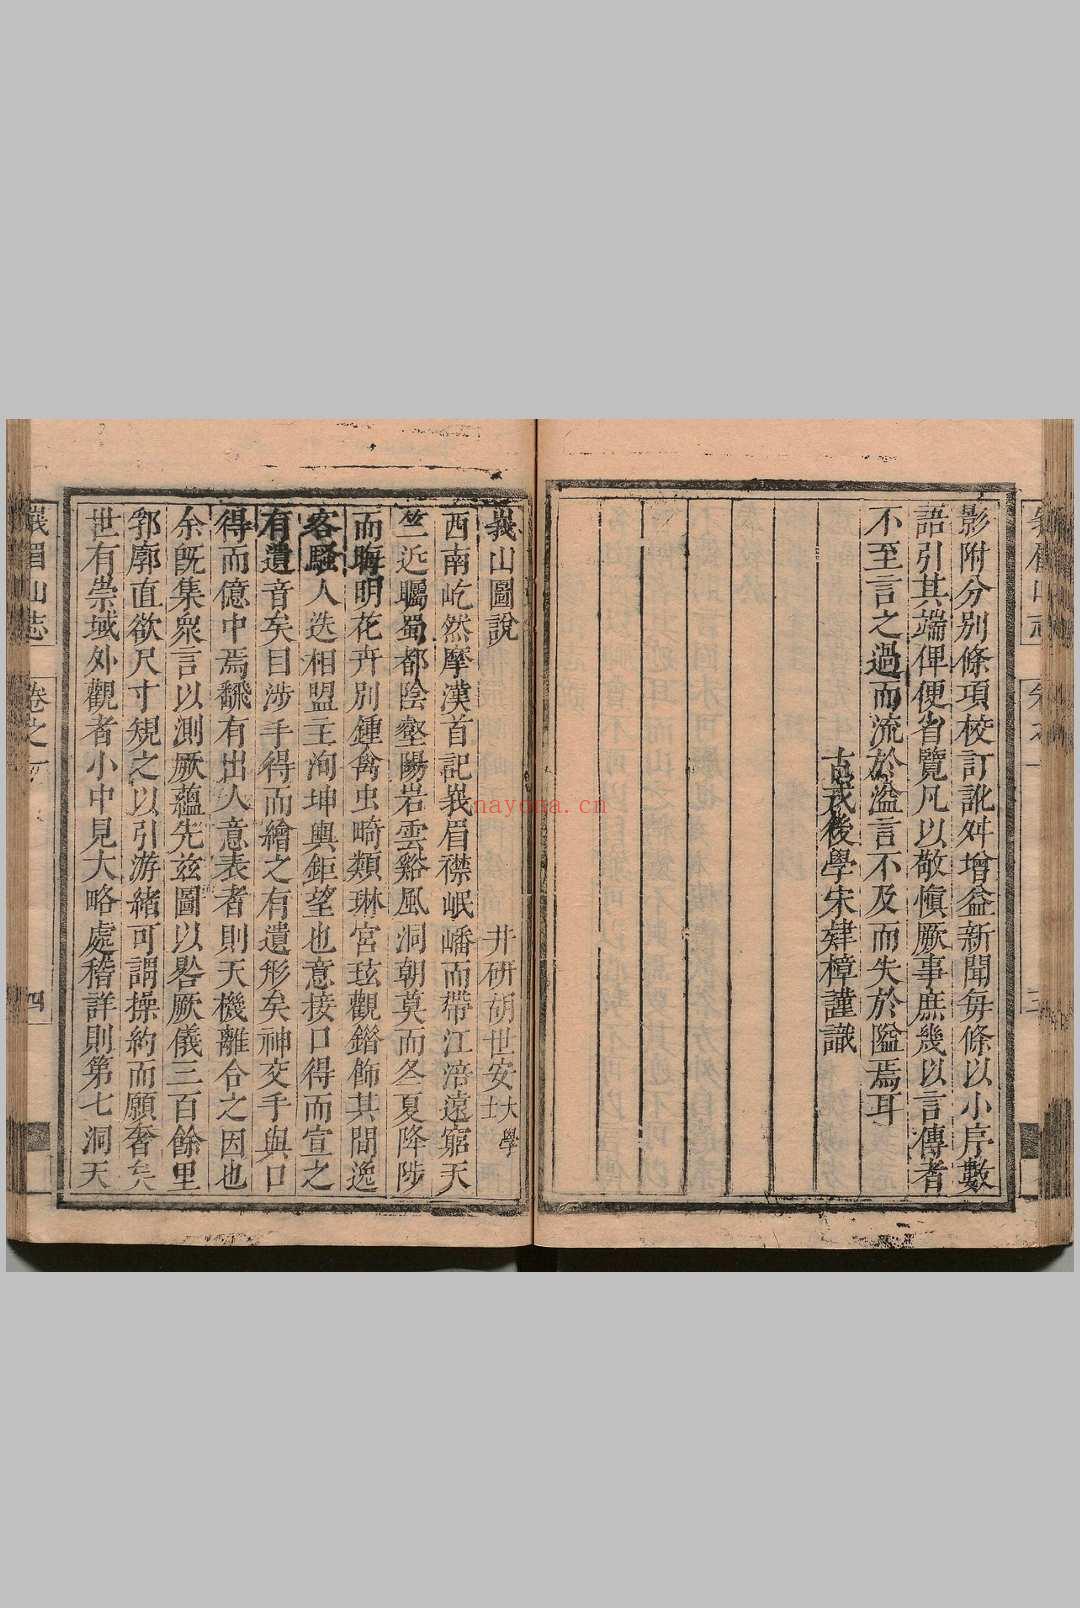 影附分別條項校訂訛舛增益新聞每條以小序數
語引其端俾便省覽凡以敬慎厥事庶幾以言傳者
不至言之過而流於溢言不及而失於隘焉耳
古戎後學宋肄樟謹識
峩山圖說
井研胡世安大學士
西南屹然摩漢首記峩眉襟岷嶓而帶江涪遠窮天
竺近矚蜀都陰壑陽岩雲谿風洞朝莫而冬夏降陟
而晦明花卉別鍾禽虫畸類琳宮玹觀錯飾其間逸
客騷人迭相盟主洵坤輿鉅望也意接口得而宣之
有遺音矣目涉手得而繪之有遺形矣神交手與口
得而億中焉飜有出人意表者則天機離合之因也
余旣集衆言以測厥蘊先茲圖以畧厥儀三百餘里
郛廓直欲尺寸規之以引游緒可謂操約而願奢矣
世有崇域外觀者小中見大略處稽詳則第七洞天
峩眉山志
卷之一
四
nayona.cn